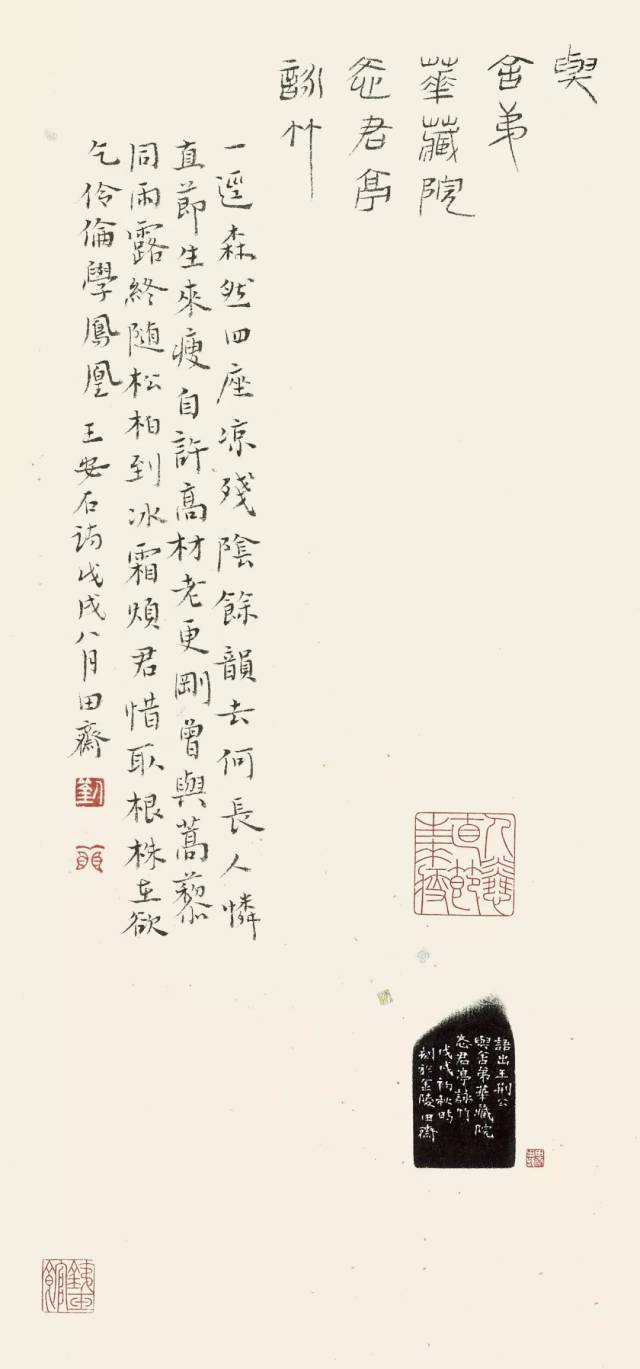 與
舍弟
華藏院
忞君亭
詠竹
一逕森然四座凉殘陰餘韻去何長人憐
直節生來瘦自許高材老更剛曾與蒿藜
同雨露終隨松柏到冰霜煩君惜取根株在欲
乞伶倫學鳳凰 王安石詩戊戌八月田齋
人憐
直節
生來瘦
語出王荆公
與舍弟華藏院
忞君亭詠竹
戊戌初秋時
刻於金陵田齋